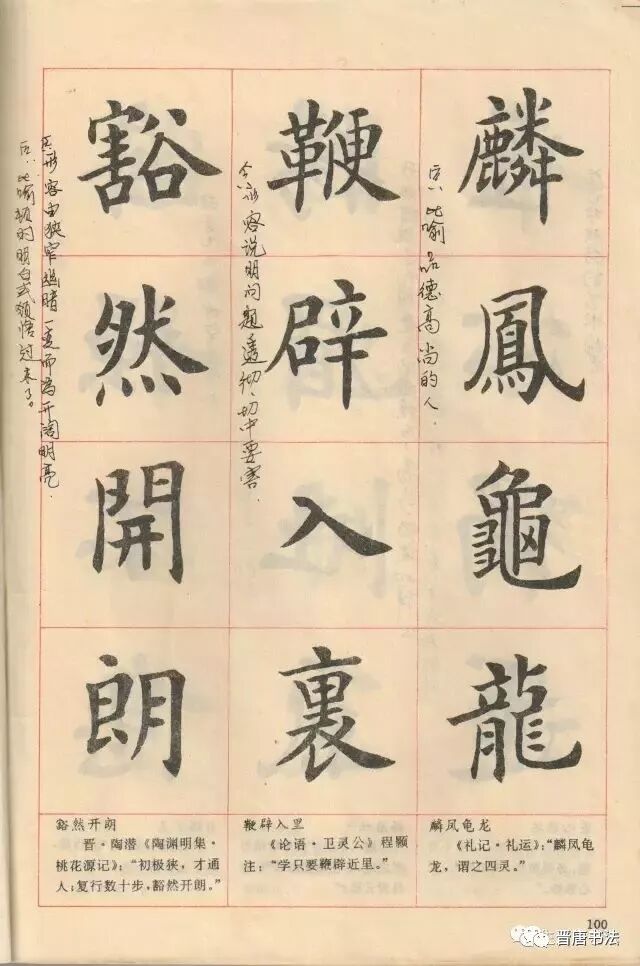 麟鳳龜龍
后以比喻品德高尚的人.
鞭辟入裏
今以形容说明问题透彻、切中要害.
豁然開朗
形容由狭窄幽暗一变而为开阔明亮.
后以比喻顿时明白或领悟过来了。
麟凤龟龙
《礼记·礼运》：“麟凤龟
龙，谓之四灵。”
鞭辟入里
《论语·卫灵公》程颢
注：“学只要鞭辟近里。”
豁然开朗
晋·陶潜《陶渊明集·
桃花源记》：“初极狭，才通
人；复行数十步，豁然开朗。”
100
晋唐书法